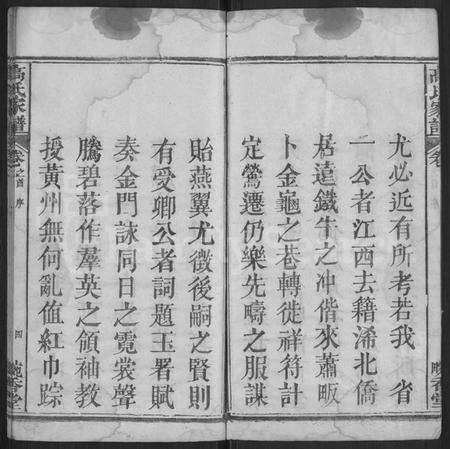 高氏家譜 卷
尤必近有所考若我 省
一公者江西去籍浠北僑
居遠鐵牛之冲偕來蕭畈
卜金龜之巷轉徙祥符計
定鶯遷仍樂先疇之服謀
貽燕翼尤徵後嗣之賢則
有愛卿公者詞題玉署賦
奏金門詠同日之霓裳聲
騰碧落作羣英之領袖教
授黃州無何亂值紅巾踪
高氏家譜 卷之首 序 四 晚香堂